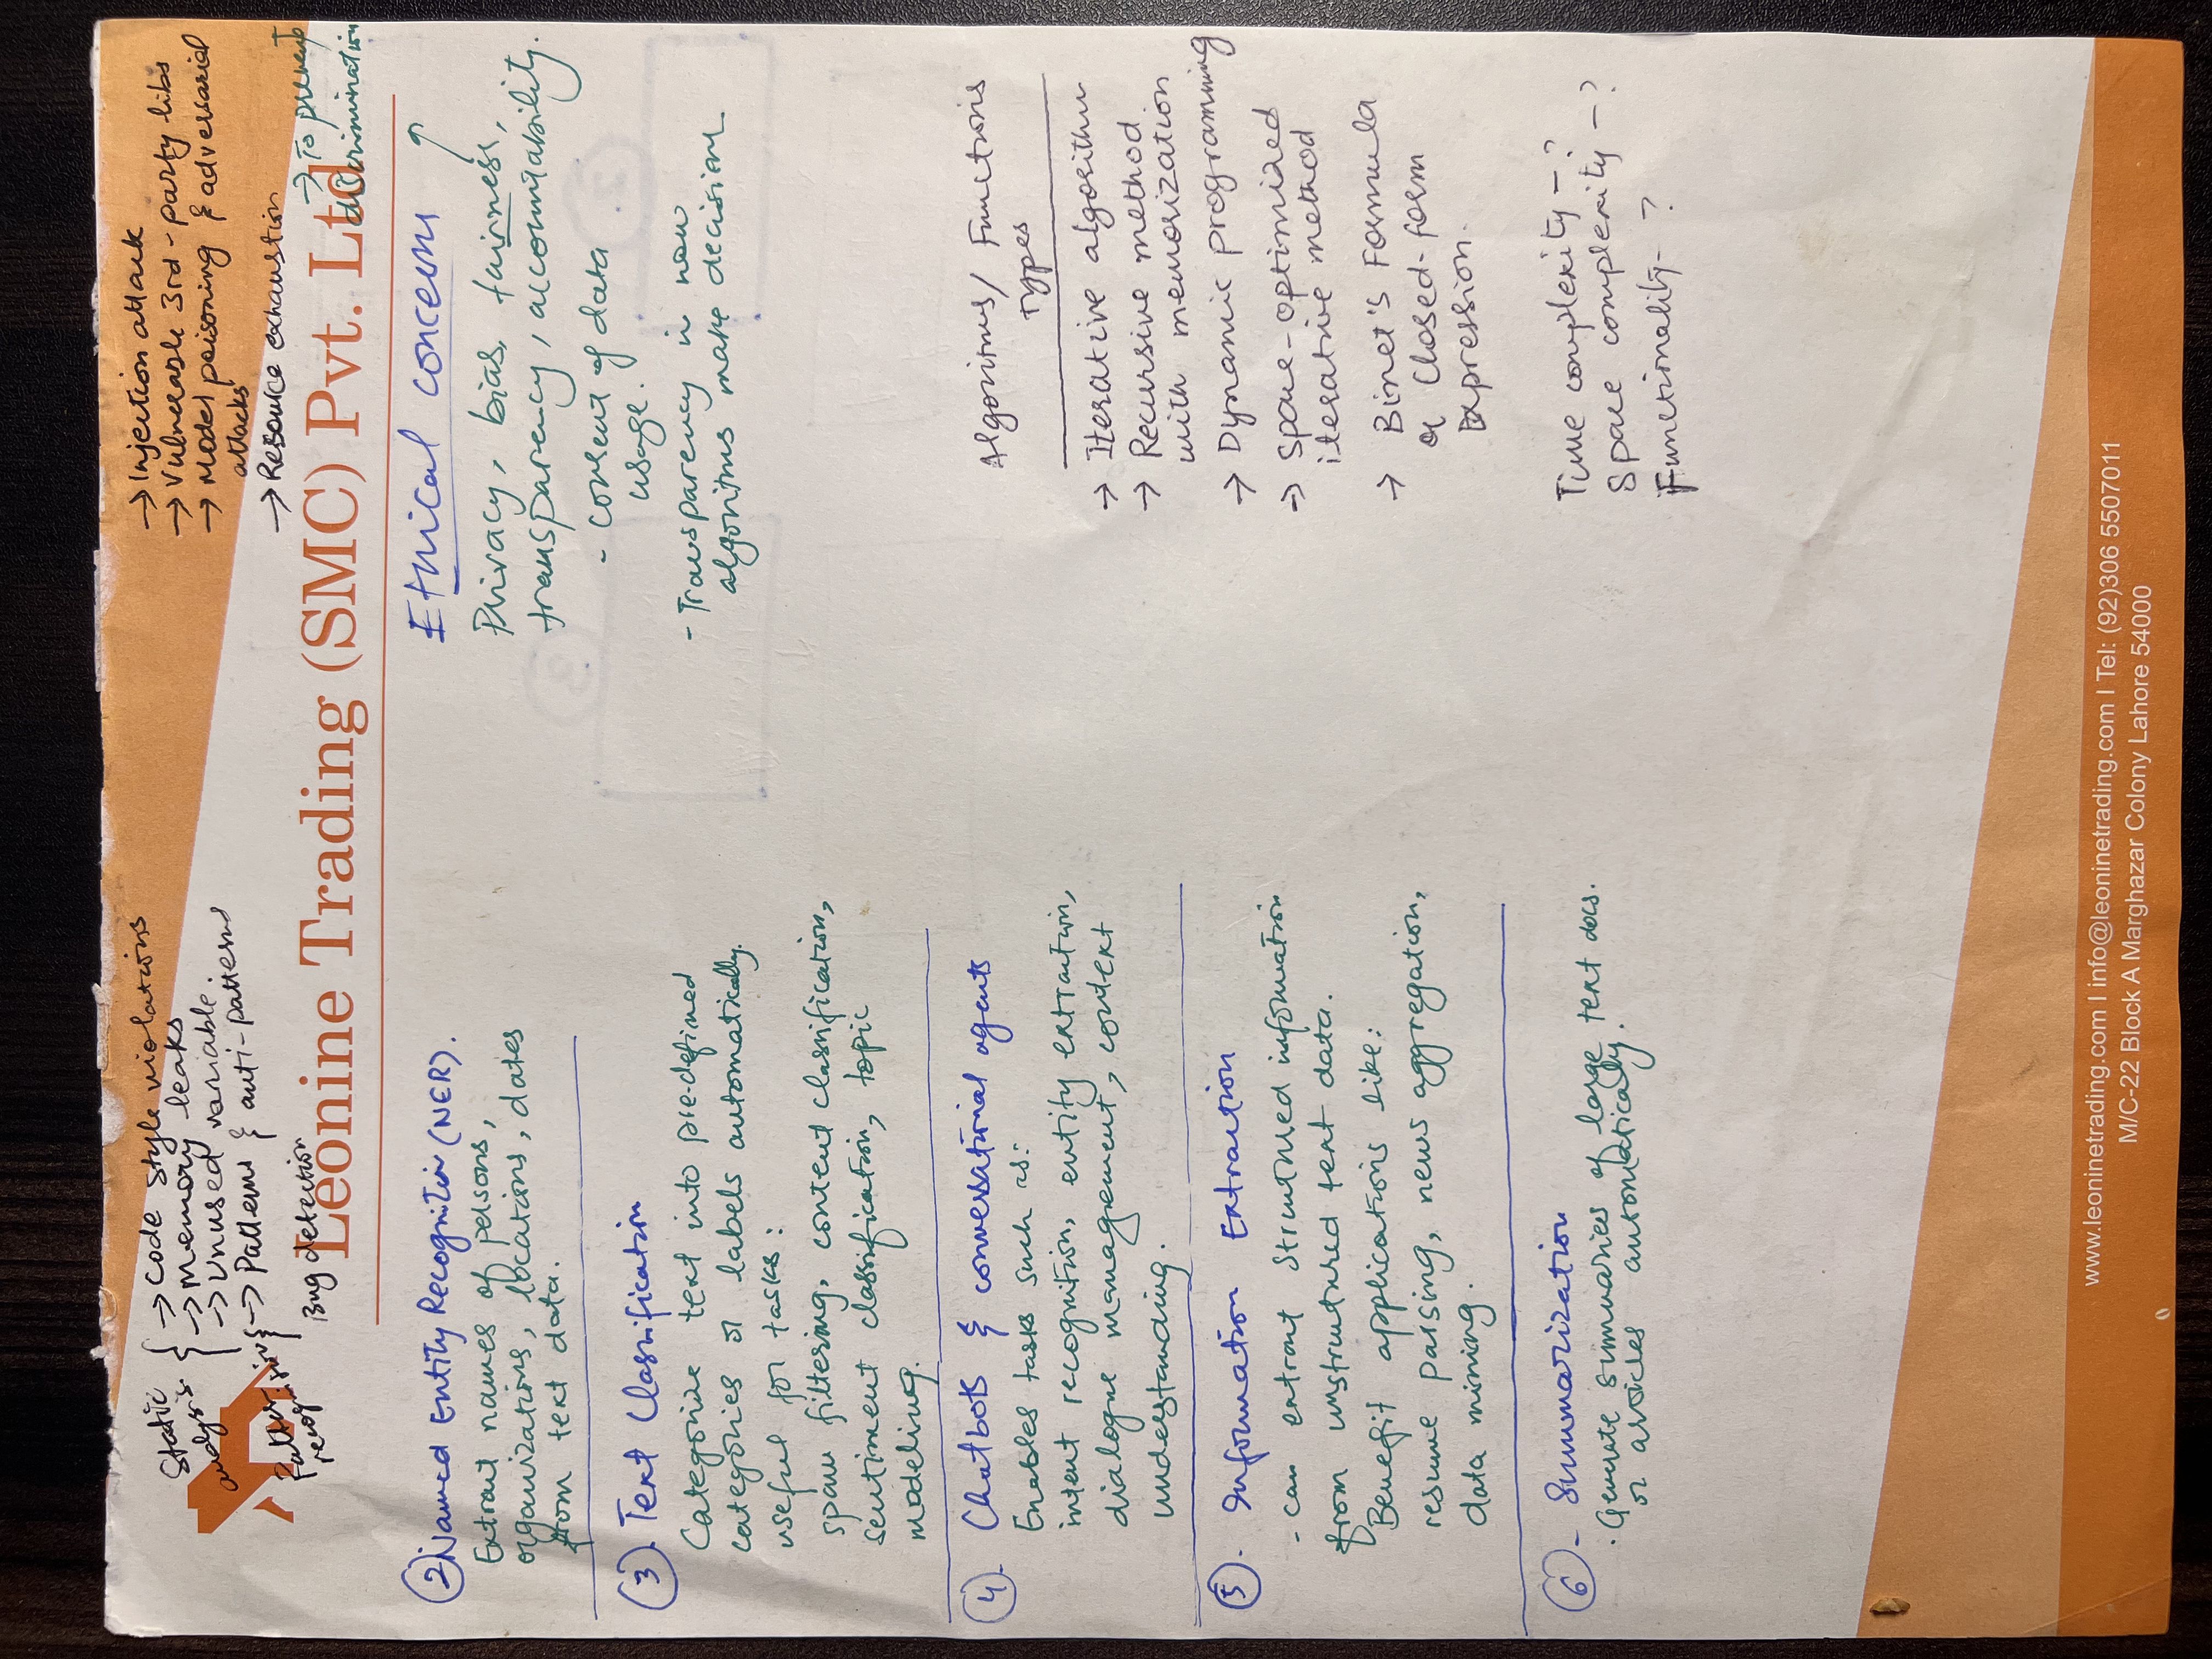 Static
analysis
→ Code style violations
→ Memory leaks
→ Unused variable.
→ Patterns & anti-patterns
Bug detection
→ Injection attack
→ Vulnerable 3rd-party libs
→ Model poisoning & adversarial
attacks
→ Resource exhaustion
→ To prevent
discrimination
Leonine Trading (SMC) Pvt. Ltd
② Named Entity Recognition (NER).
Extract names of persons,
organizations, locations, dates
from text data.
③. Text Classification
Categorize text into pre-defined
categories or labels automatically.
useful for tasks:
spam filtering, content classification,
sentiment classification, topic
modeling.
④. Chatbots & conversational agents
Enables tasks such as:
intent recognition, entity extraction,
dialogue management, context
understanding.
⑤. Information Extraction
- can extract structured information
from unstructured text data.
Benefit applications like:
resume parsing, news aggregation,
data mining.
⑥ - Summarization
. Generate summaries of large text docs.
or articles automatically.
Ethical concern
Privacy, bias, fairness,
transparency, accountability.
- consent of data
usage.
- Transparency in how
algorithms make decision
Algorithms/ Functions
Types
→ Iterative algorithm
→ Recursive method
with memorization
→ Dynamic programming
→ Space-optimized
iterative method
→ Binet's Formula
or Closed-form
Expression.
Time complexity - ?
Space complexity - ?
Functionality - ?
www.leoninetrading.com I info@leoninetrading.com I Tel: (92)306 5507011
M/C-22 Block A Marghazar Colony Lahore 54000